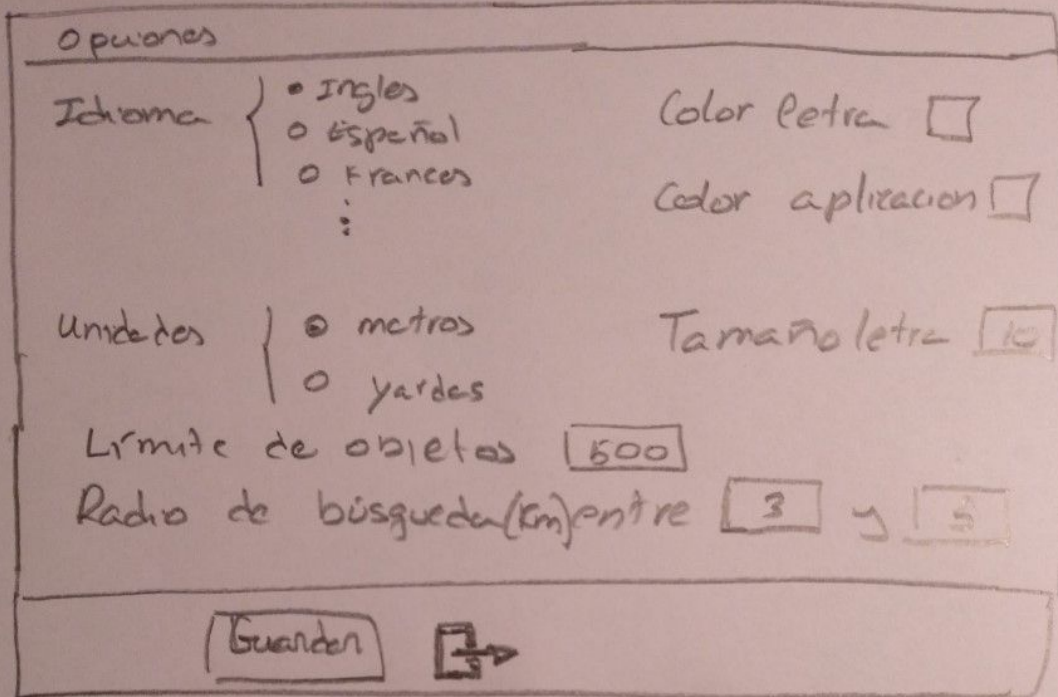 Opciones
Idioma
Ingles
Español
Frances
Color letra
Color aplicacion
Unidades
metros
yardas
Tamaño letra 10
Límite de objetos 500
Radio de búsqueda (km) entre 3 y 5
Guardar